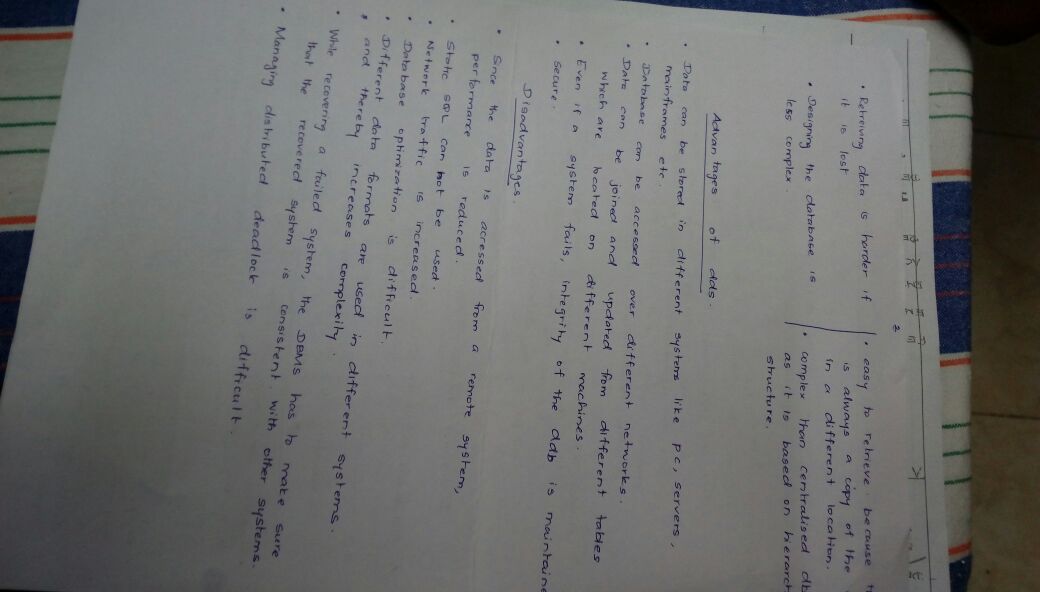 2
• Retreiving data is harder if
it is lost
• Designing the database is
less complex.
• easy to retrieve because
is always a copy of the
in a different location.
• complex than centralised db
as it is based on
structure.
Advantages of dds.
• Data can be stored in different systems like pc, servers,
mainframes etc.
• Database can be accessed over different networks.
• Data can be joined and updated from different tables
which are located on different machines.
• Even if a system fails, integrity of the ddb is
• secure.
Disadvantages.
• Since the data is acressed from a remote system,
performance is reduced.
• Static SQL can not be used.
• Network traffic is increased.
• Database optimization is difficult.
• Different data formats are used in different systems.
• and thereby increases complexity.
• While recovering a failed system, the DBMS has to make sure
that the recovered system is consistent with other systems.
• Managing distributed deadlock is difficult.